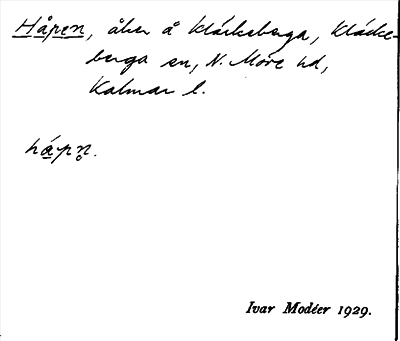 Håpen, åker å Kläckeberga, Kläcke-
berga sn, N. Möre hd,
Kalmar l.
håpn̥.
Ivar Modéer 1929.